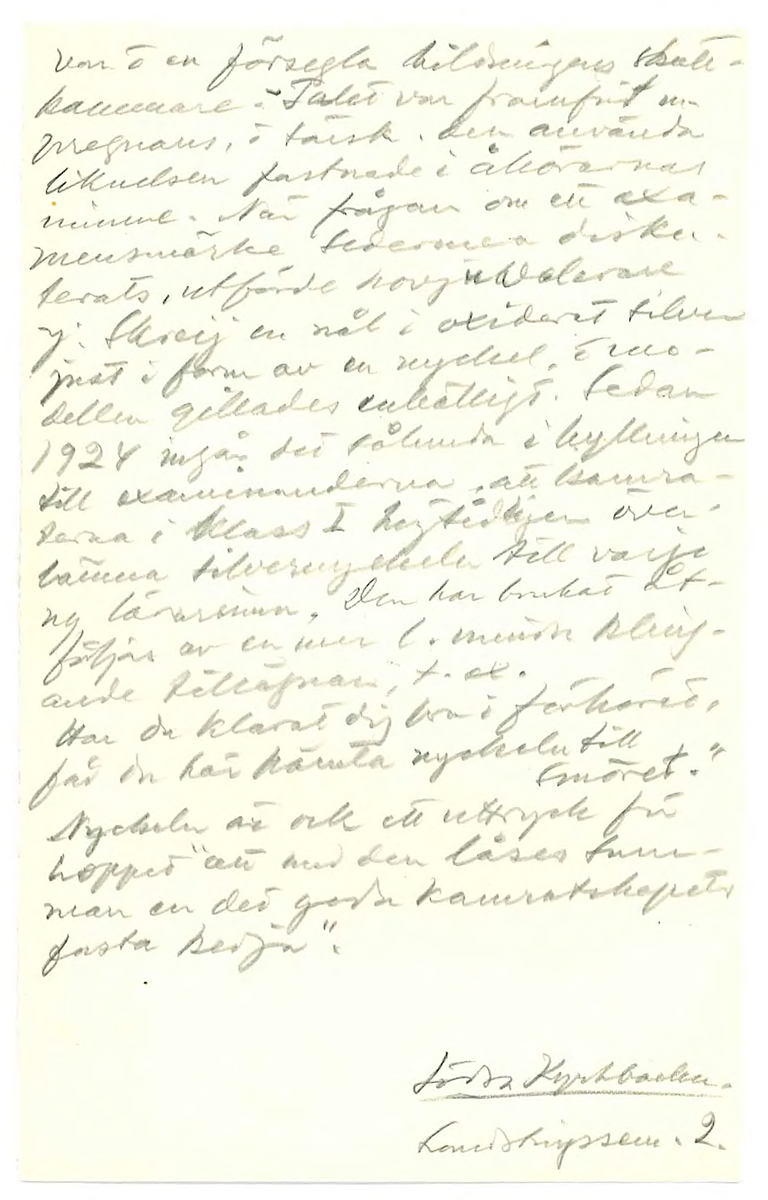 en försegla bildningens skatt-
kammare." Talet var framfört m.
pregnans, o färsk. Den använda
liknelsen fastnade i åhörarnas
minne. När frågan om ett exa-
mensmärke sedermera disku-
terats, utförde hovjuvelerare
en nål i oxiderat silver
just i form av en nyckel, o mo-
dellen gillades enhälligt. Sedan
1924 ingår det sålunda i hyllningen
till examinanderna, att kamra-
terna i klass I högtidligen över-
lämna silvernyckeln till varje
ny lärarinna. Den har brukat åt-
följas av en mer l. mindre kling-
ande tillägnan, t. ex.
Har du klarat dig bra i förhöret,
får du här hämta nyckeln till
smöret."
Nyckeln är ock ett uttryck för
hoppet "att med den låses sam-
man en det goda kamratskapets
fasta kedja".
Södra Kyrkbacken.
2.